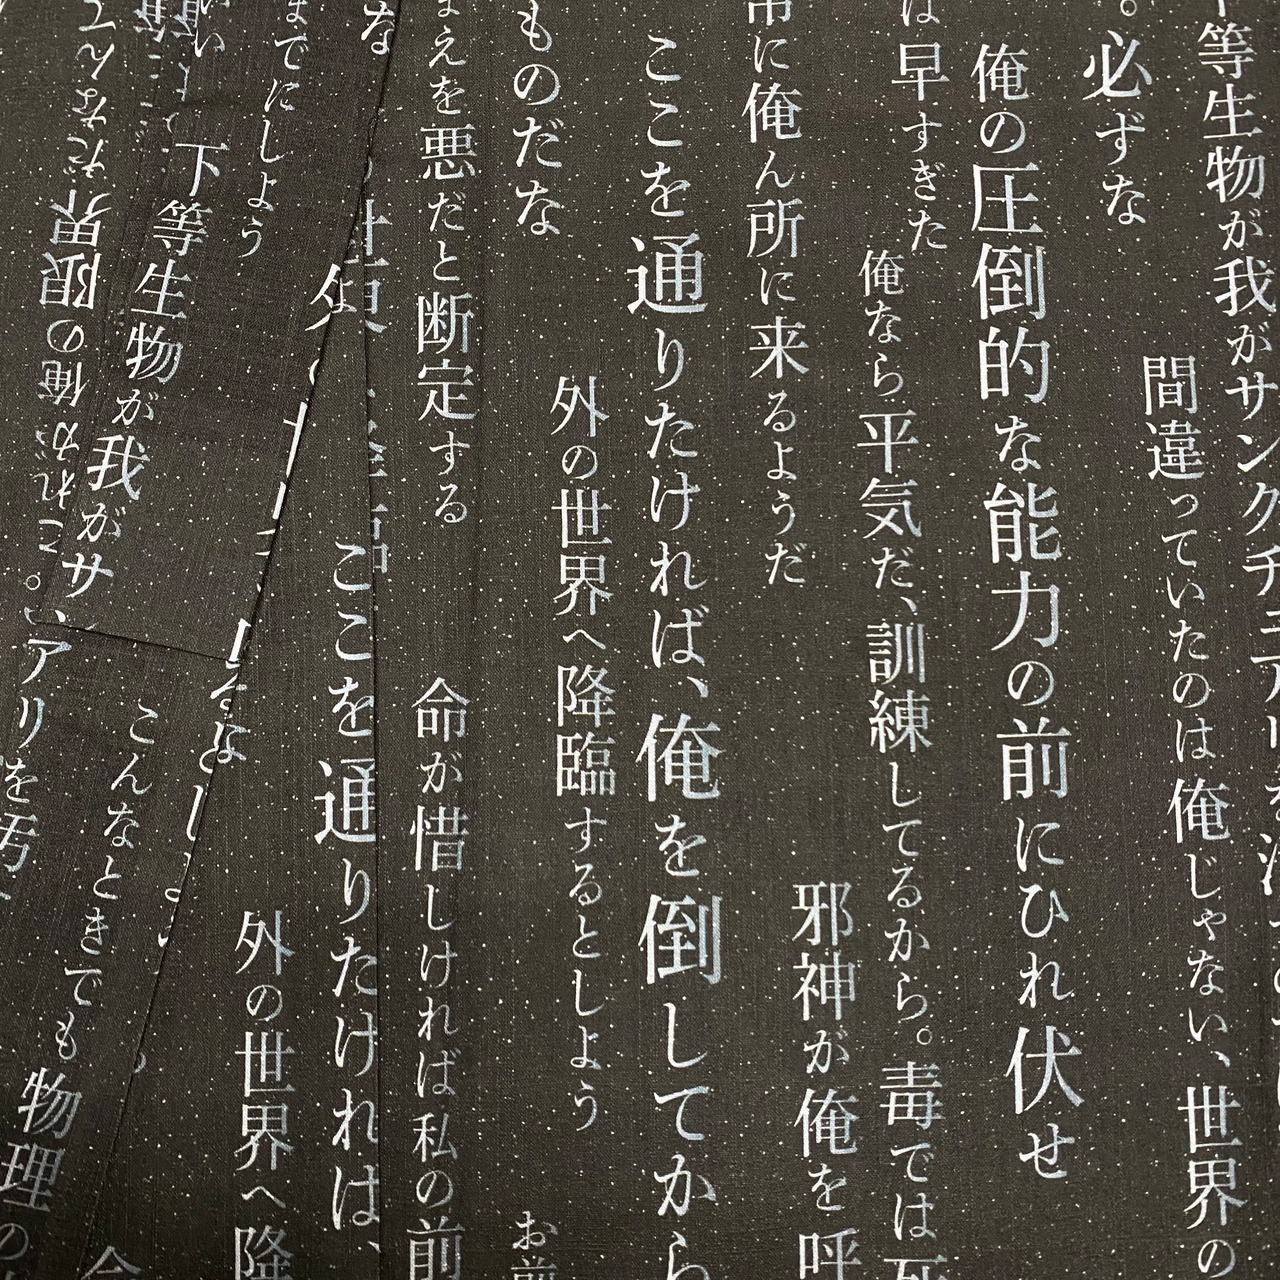 等生物が我がサンクチュアリを
間違っていたのは俺じゃない、世界の
。必ずな
俺の圧倒的な能力の前にひれ伏せ
は早すぎた
俺なら平気だ、訓練してるから。毒では
邪神が俺を呼
に俺ん所に来るようだ
ここを通りたければ、俺を倒してから
外の世界へ降臨するとしよう
ものだな
お前
まえを悪だと断定する
命が惜しければ私の前
ここを通りたければ、
外の世界へ降
までにしよう
下等生物が我がサ
こんなときでも物理の
これが俺の限界だなんて
アリ
を汚